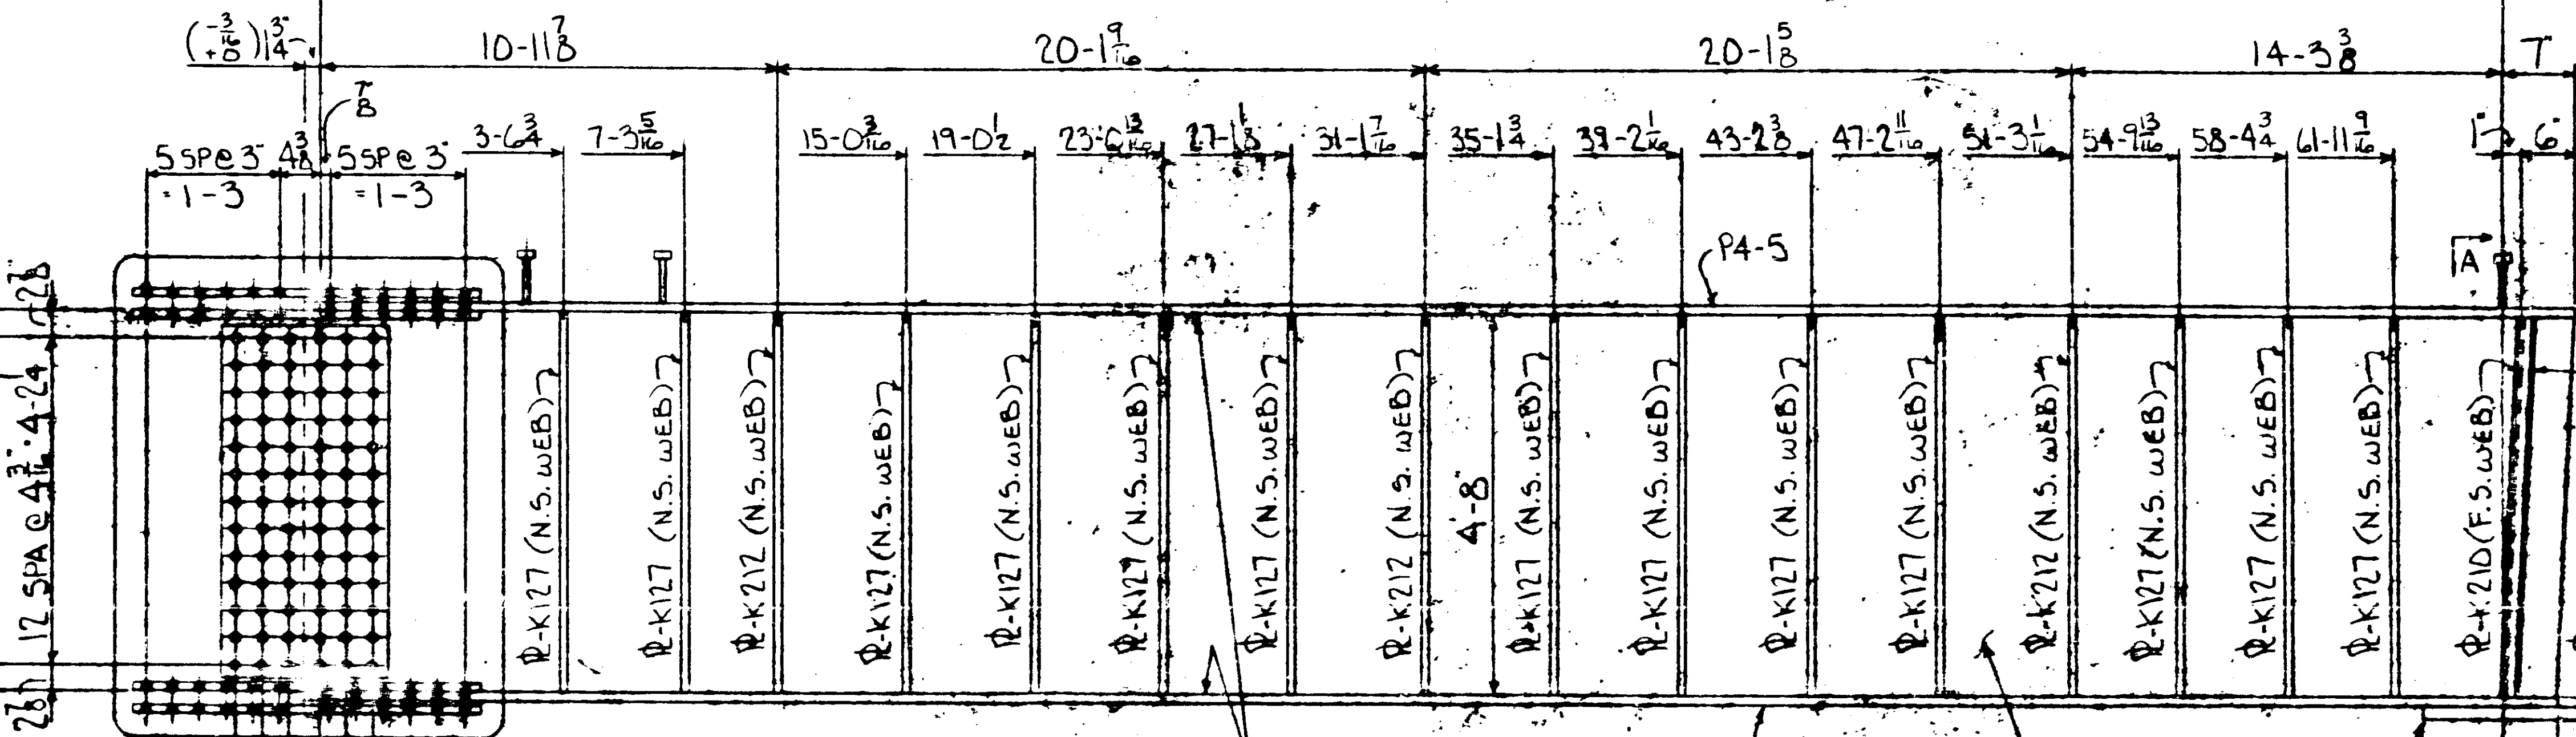 (-3/16 +0) 1 3/4"
10-11 7/8
20-1 9/16
20-1 5/8
14-3 3/8
7"
7/8
5 SP @ 3"
= 1-3
4 3/8
5 SP @ 3"
= 1-3
3-6 3/4
7-3 5/16
15-0 3/16
19-0 1/2
23-0 13/16
27-1 1/8
31-1 7/16
35-1 3/4
39-2 1/16
43-2 3/8
47-2 11/16
51-3 1/16
54-9 13/16
58-4 3/4
61-11 9/16
1"
6"
P4-5
A
2 7/8"
12 SPA @ 4 3/16" = 4-2 1/4
2 7/8
4'-8"
PL-K127 (N.S. WEB)
PL-K127 (N.S. WEB)
PL-K212 (N.S. WEB)
PL-K127 (N.S. WEB)
PL-K127 (N.S. WEB)
PL-K127 (N.S. WEB)
PL-K127 (N.S. WEB)
PL-K212 (N.S. WEB)
PL-K127 (N.S. WEB)
PL-K127 (N.S. WEB)
PL-K127 (N.S. WEB)
PL-K127 (N.S. WEB)
PL-K212 (N.S. WEB)
PL-K127 (N.S. WEB)
PL-K127 (N.S. WEB)
PL-K127 (N.S. WEB)
PL-K210 (F.S. WEB)